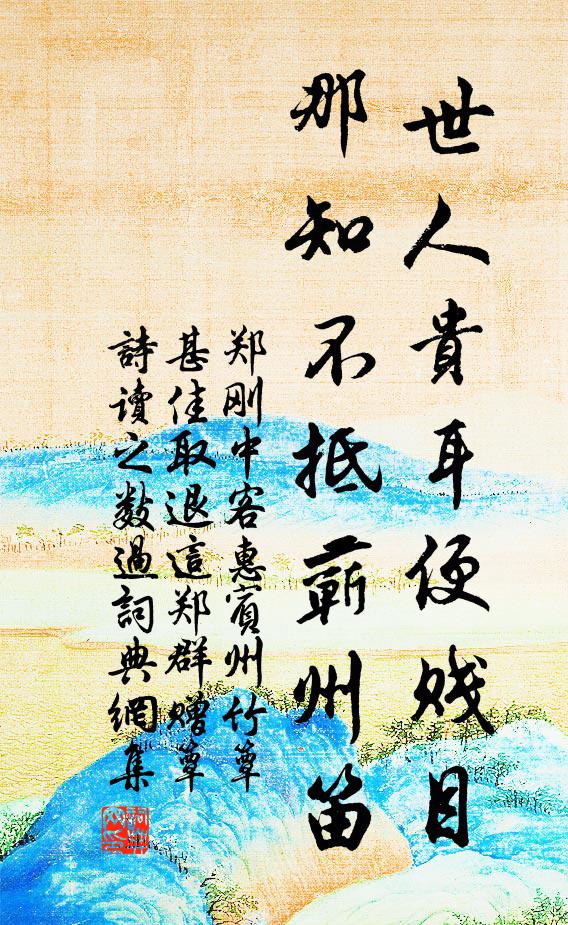 世人貴耳便贱目
那知不抵蕲州笛
郑刚中客惠賓州竹簟
甚佳取退這郑群赠簟
詩读之数過詞典網集